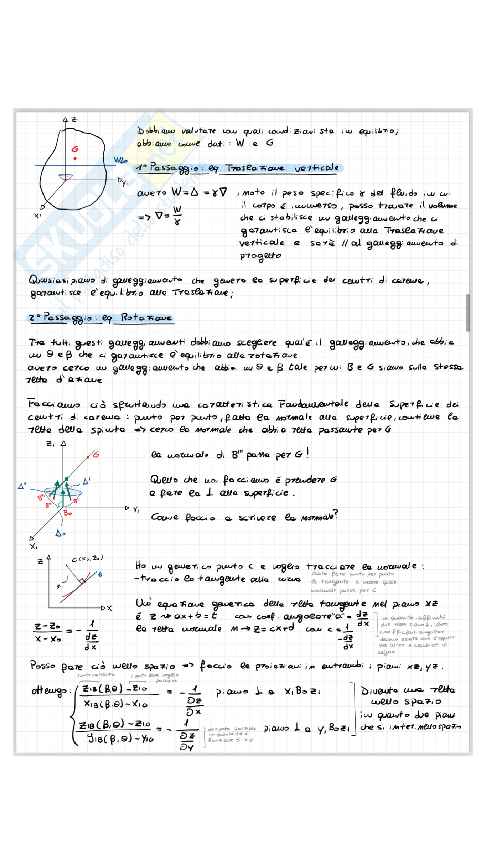 Dobbiamo valutare con quali condizioni sta in equilibrio,
abbiamo come dati: W e G
Z
G
WL0
X1
Y1
1° Passaggio: eq Traslazione verticale
avevo W=Δ=γ∇
=> ∇= W/γ
, noto il peso specifico γ del fluido in cui
il corpo è immerso, posso trovare il volume
che ci stabilisce un galleggiamento che ci
garantisca l'equilibrio alla Traslazione
verticale e sarà // al galleggiamento di
progetto
Qualsiasi piano di galleggiamento che genera la superficie dei centri di carena,
garantisce l'equilibrio alla Traslazione;
2° Passaggio: eq Rotazione
Tra tutti questi galleggiamenti dobbiamo scegliere qual'è il galleggiamento, che abbia
un θ e β che ci garantisce l'equilibrio alla rotazione
ovvero cerco un galleggiamento che abbia un θ e β tale per cui B e G siano sulla stessa
retta d'azione
Facciamo ciò sfruttando una caratteristica Fondamentale della Superficie dei
centri di carena: punto per punto, fatta la normale alla superficie, contiene la
retta della spinta => cerco la normale che abbia retta passante per G
Z1
G
Δ"
Δ'
B"
B'
B0
Y1
Δ0
X1
la normale di B''' passa per G!
Quello che noi facciamo è prendere G
e fare la ⊥ alla superficie.
Come faccio a scrivere la normale?
Z
C(x0,Z0)
X
Ho un generico punto C e voglio tracciare la normale:
-traccio la tangente alla curva
Un'equazione generica della retta tangente nel piano XZ
è Z => ax+b=t con coef. angolare a = dz/dx
la retta normale n => Z=cx+d con c= 1/-dz/dx
Z-Z0/X-X0 = - 1/dz/dx
Posso fare ciò nello spazio => faccio le proiezioni in entrambi i piani xz, yz.
ottengo: Z1B(β,θ)-Z1G/X1B(β,θ)-X1G = - 1/∂z/∂x piano ⊥ a X1B0Z1
Z1B(β,θ)-Z1G/Y1B(β,θ)-Y1G = - 1/∂z/∂y piano ⊥ a Y1B0Z1
Diventa una retta
nello spazio
in quanto due piani
che si inter. nello spazio